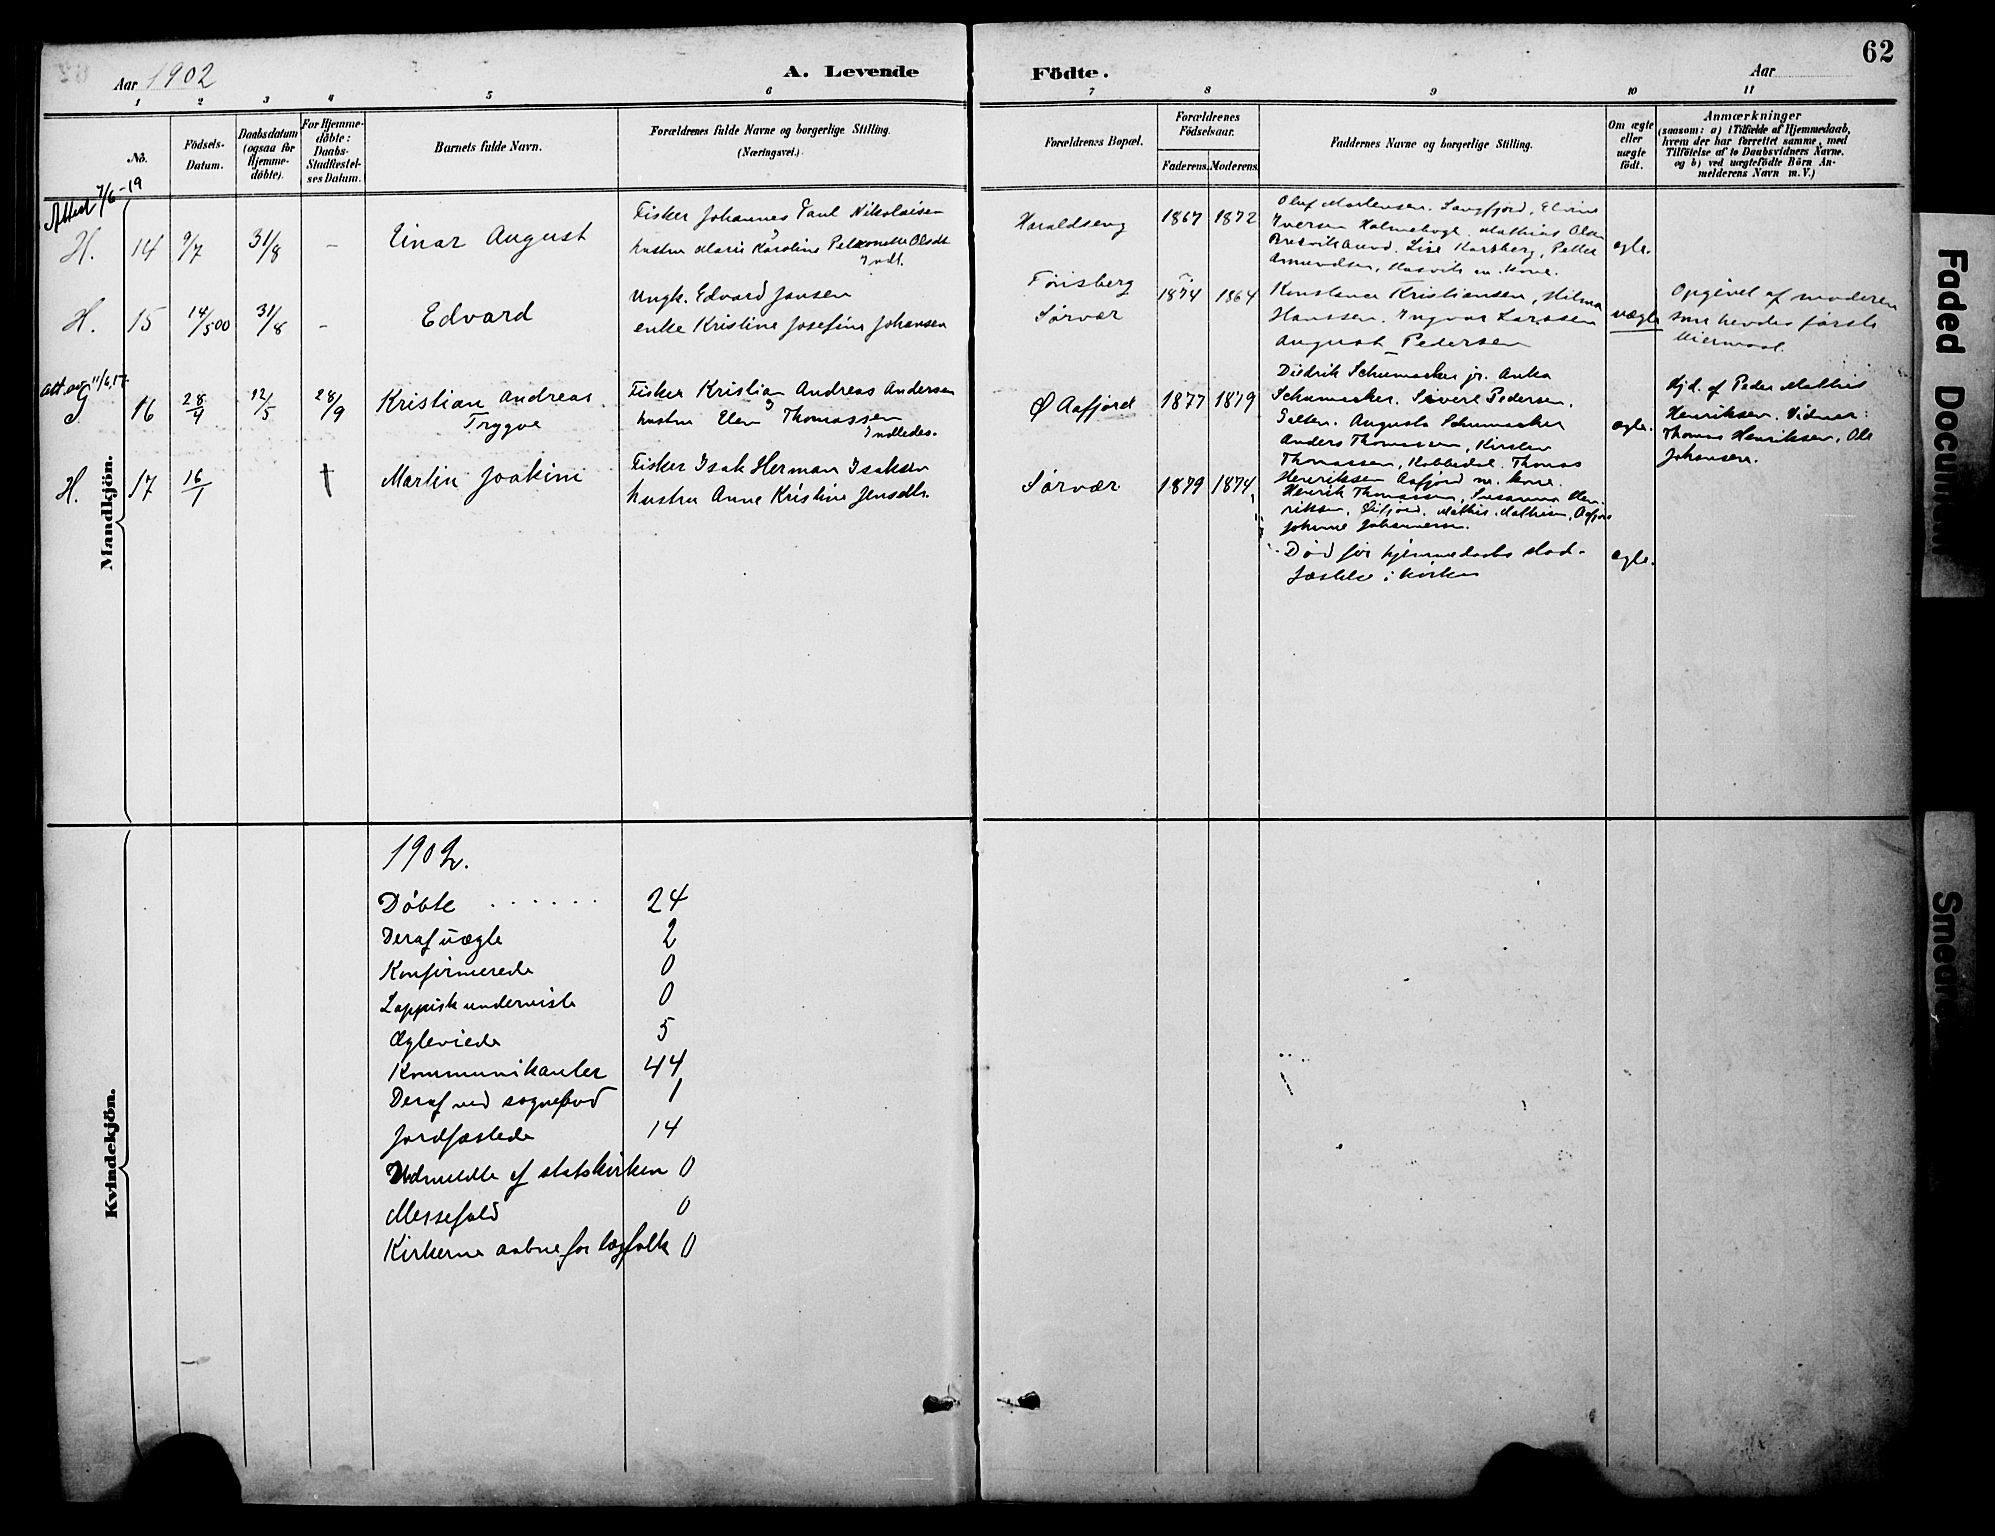 62
Aar 1902
A. Levende Födte.
Aar
1 2 3 4 5 6 7 8 9 10 11
No.
Födsels-Datum.
Daabsdatum (ogsaa for Hjemme-döbte).
For Hjemme-döbte: Daabs-Stadfæstel-ses Datum.
Barnets fulde Navn.
Forældrenes fulde Navne og borgerlige Stilling. (Næringsvei.)
Forældrenes Bopæl.
Forældrenes Födselsaar.
Faderens. Moderens.
Faddernes Navne og borgerlige Stilling.
Om ægte eller uægte födt.
Anmærkninger
(saasom: a) i Tilfælde af Hjemmedaab,
hvem der har forrettet samme, med
Tilföielse af to Daabsvidners Navne.
og b) ved uægtefödte Börn An-
melderens Navn m. V.)
Mandkjön.
Attest 7/6-19
H. 14 9/7 31/8 - Einar August
Fisker Johannes Paul Nikolaisen
hustru Marie Karoline Petronelle Olsdt
Indl.
Haraldseng 1867 1872
Oluf Mortensen, Langfjord, Elvine
Iversen Holmebogt. Mathias Olsen
Lise Karlberg, Petter
Amundsen, Hasvik m. kone.
ægte.
H. 15 14/5 00 31/8 - Edvard
Ungk. Edvard Jansen
enke Kristine Josefine Johansen
Sørvær 1874 1864
Konstance Kristiansen, Hilma
Hanssen, Ingvar Larssen
August Pedersen
uægte
Opgivet af moderen
som hendes første
leiermaal.
att. av. 11/6.17.
16 28/4 12/5 28/9 Kristian Andreas
Trygve
Fisker Kristian Andreas Andersen
hustru Elen Thomassen
Indledes.
Ø Aafjord 1877 1879
Diedrik Schumacker jr. Anka
Schumacker. Sivert Pedersen,
Augusta Schumacker
Anders Thomassen, Kirsten
Thomassen, Kobbedal. Thomas
Henriksen Aafjord m. kone.
Henrik Thomassen, Susanna Hen-
riksen, Mathis Mathisen, Aafjord
Johanne Johannessen.
ægte.
Hjd. af Peder Mathis
Henriksen. Vidner:
Thomas Henriksen, Ole
Johansen.
H. 17 16/1 † Martin Joakim
Fisker Isak Herman Isaksen
hustru Anne Kristine Jensdtr.
Sørvær 1879 1874
Død før hjemmedaabs stad-
fæstelse i kirken
ægte.
Kvindekjön.
1902.
Døbte . . . . . . 24
Deraf uægte 2
Konfirmerede 0
Lappisk underviste 0
Ægteviede 5
Kommunikanter 44
Deraf ved sognebud 1
Jordfæstede 14
Udmeldte af statskirken 0
Messefald 0
Kirkerne aabne for lægfolk 0
Faded Document
Smeared